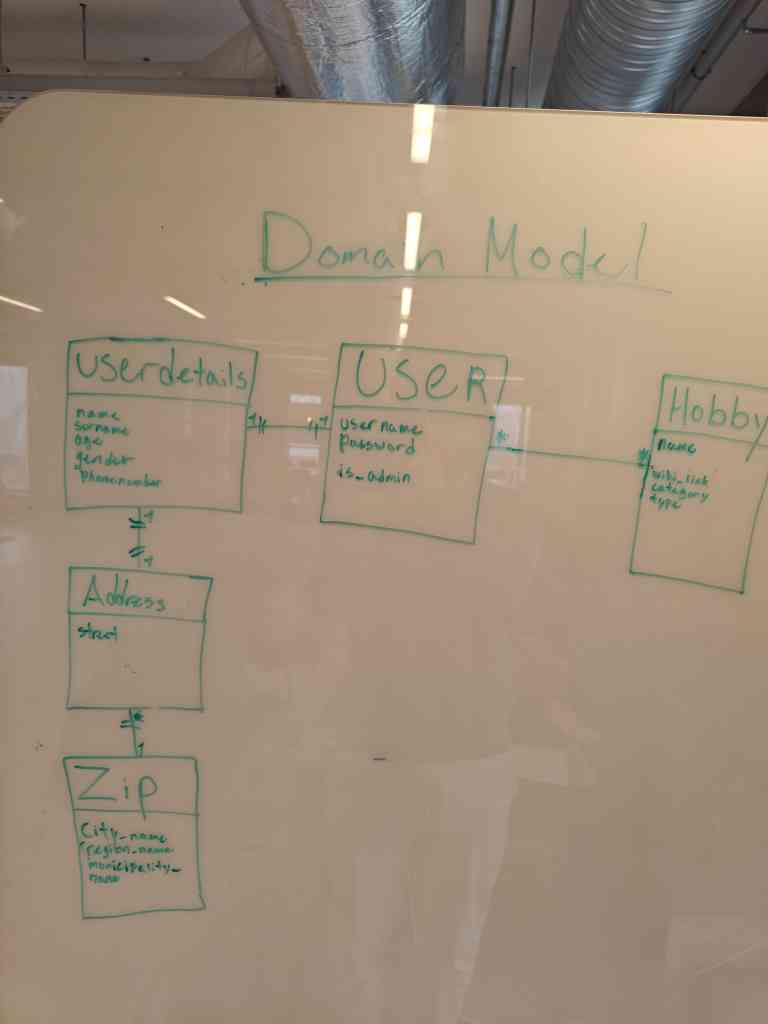 Domain Model
userdetails
name
surname
age
gender
phonenumber
1
1
USER
username
password
is_admin
*
*
Hobby
name
wiki_link
category
type
1
1
Address
street
*
1
Zip
City_name
region_name
municipality_
name